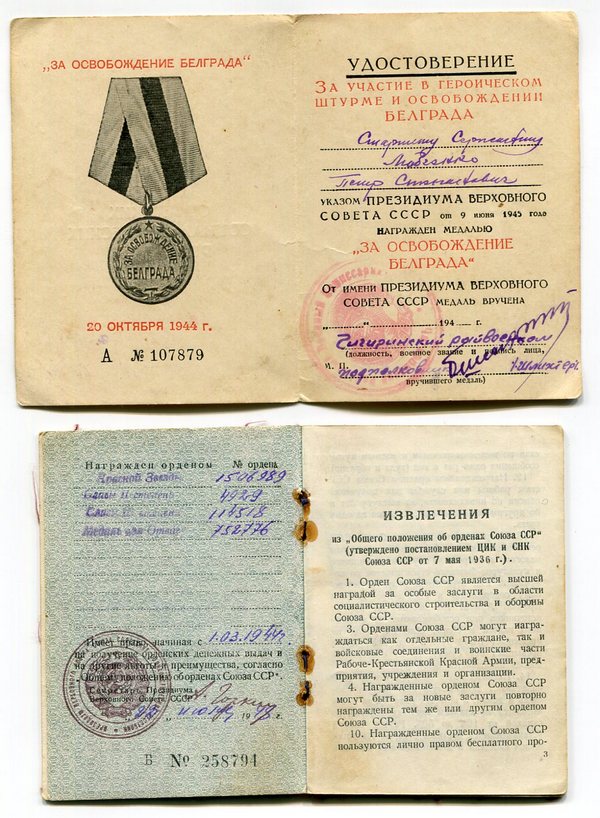 „ЗА ОСВОБОЖДЕНИЕ БЕЛГРАДА“
ЗА ОСВОБОЖДЕНИЕ
БЕЛГРАДА
20 ОКТЯБРЯ 1944 г.
А № 107879
УДОСТОВЕРЕНИЕ
ЗА УЧАСТИЕ В ГЕРОИЧЕСКОМ
ШТУРМЕ И ОСВОБОЖДЕНИИ
БЕЛГРАДА
Старшему Сержанту
Петр
УКАЗОМ ПРЕЗИДИУМА ВЕРХОВНОГО
СОВЕТА СССР от 9 июня 1945 года
НАГРАЖДЕН МЕДАЛЬЮ
„ЗА ОСВОБОЖДЕНИЕ
БЕЛГРАДА“
От имени ПРЕЗИДИУМА ВЕРХОВНОГО
СОВЕТА СССР МЕДАЛЬ ВРУЧЕНА
„ “ 194 г.
Чигиринский райвоенком
(должность, военное звание и подпись лица,
М. П. подполковник
вручившего медаль)
Награжден орденом № ордена
Красной Звезды 1506989
Славы II степени 4929
Славы III степени 114518
Медаль за Отвагу 752776
Имеет право, начиная с 1.03.1944г.
на получение орденских денежных выдач и
на другие льготы и преимущества, согласно
Общему положению об орденах Союза ССР“.
Секретарь Президиума
Верховного Совета СССР
Б № 258794
ИЗВЛЕЧЕНИЯ
из „Общего положения об орденах Союза ССР“
(утверждено постановлением ЦИК и СНК
Союза ССР от 7 мая 1936 г.).
1. Орден Союза ССР является высшей
наградой за особые заслуги в области
социалистического строительства и обороны
Союза ССР.
3. Орденами Союза ССР могут награ-
ждаться как отдельные граждане, так и
войсковые соединения и воинские части
Рабоче-Крестьянской Красной Армии, пред-
приятия, учреждения и организации.
4. Награжденные орденом Союза ССР
могут быть за новые заслуги повторно
награждены тем же или другим орденом
Союза ССР.
10. Награжденные орденом Союза ССР
пользуются лично правом бесплатного про-
3